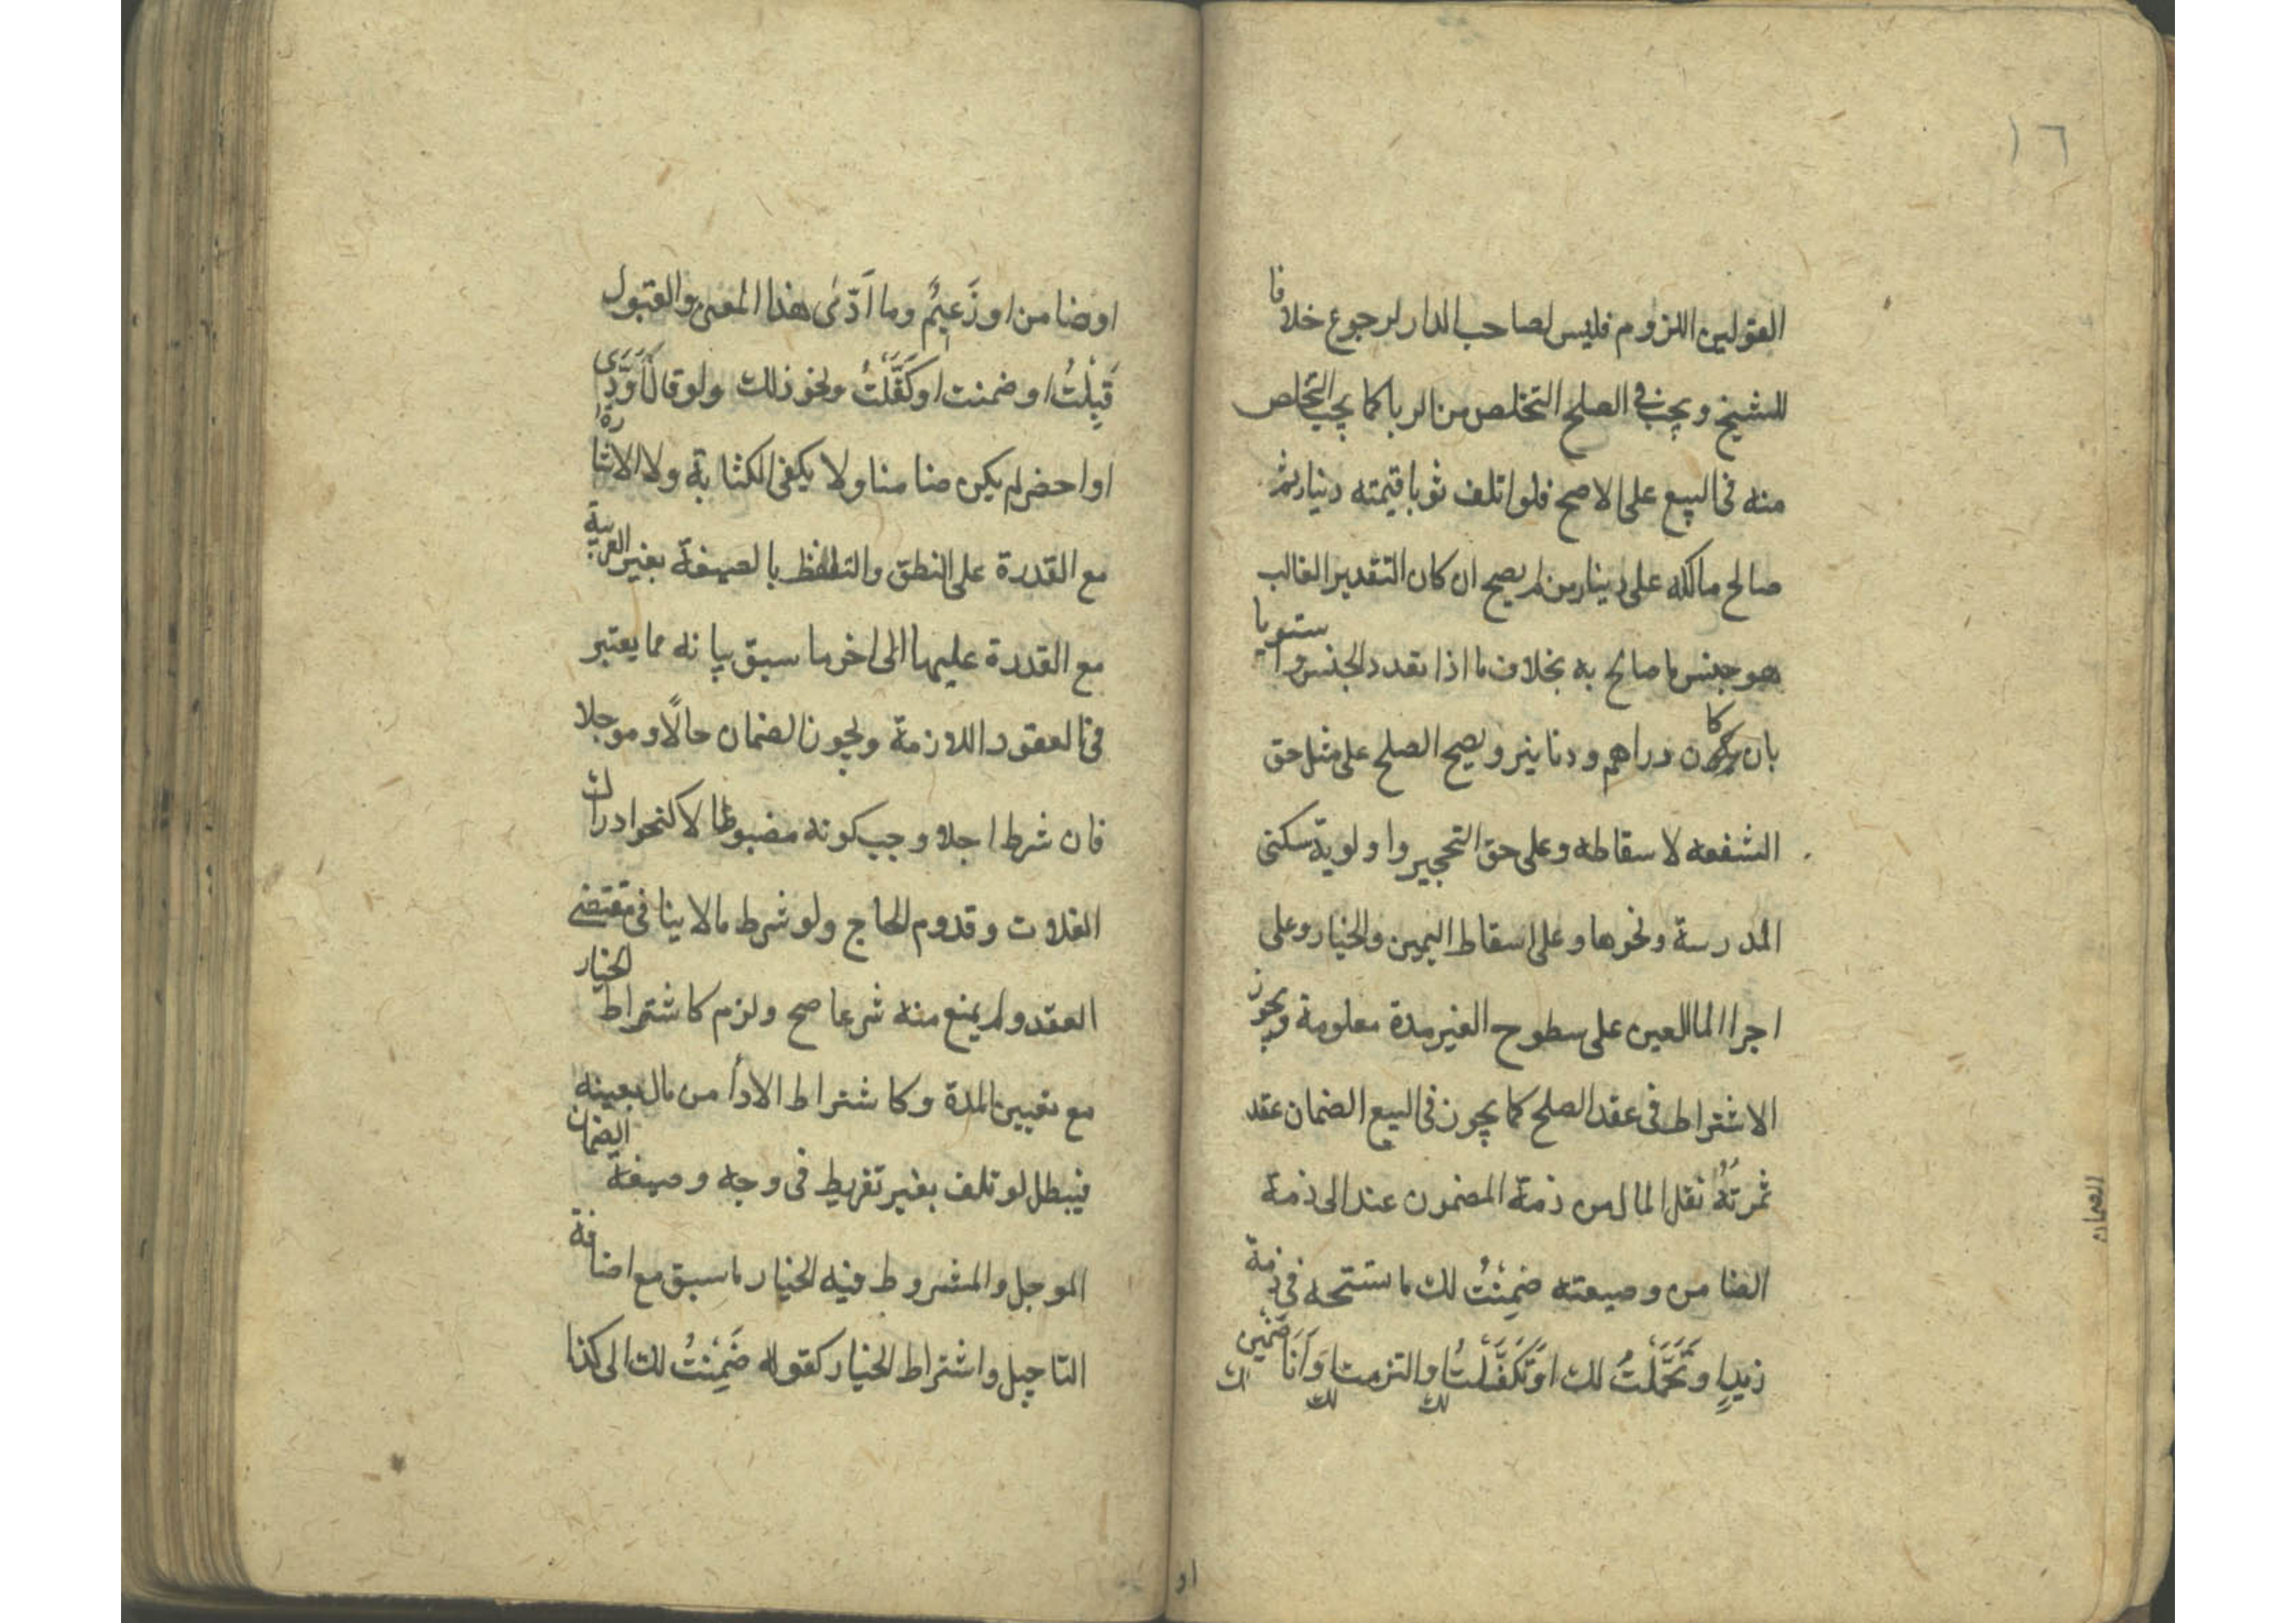 ١٦
القولين اللزوم فليس لصاحب الدار لرجوع خلافا
للشيخ ويجب في الصلح التخلص من الربا كما يجب التخلص
منه في البيع على الاصح فلو اتلف ثوبا قيمته دينار ثم
صالح مالكه على دينارين لم يصح ان كان التقدير الغالب
هو جنس ما صالح به بخلاف ما اذا تعدد الجنس واستويا
بان كا ن دراهم ودنانير ويصح الصلح على مثل حق
الشفعه لاسقاطه وعلى حق التحجير واولوية سكنى
المدرسة ونحوها وعلى اسقاط اليمين والخيار وعلى
اجرا الما للعين على سطوح الغير مدة معلومة ويجوز
الاشتراط في عقد الصلح كما يجوز في البيع الضمان عقد
ثمرتُهُ نقل المال من ذمة المضمون عند الى ذمة
الضامن وصيعته ضَمِنْتُ لك ما ستحه في ذمة
زيدٍ وتَحَمَّلْتُ لك او تَكَفَّلْتُ لك والتزمت لك وَاَنَا ضَمِين لك
الضمان
او
اوضامن او زَعيمٌ وما اَدّى هذا المعنى والقبول
قَبِلْتُ او ضمنت او كَفَّلْتُ ونحو ذلك ولو قال اُوَدِّى
او احضر لم يكن ضامنا ولا يكفى الكتابة ولا الاشارة
مع القدرة على النطق والتلفظ بالصيغة بغير العربية
مع القدرة عليها الى اخر ما سبق بيانه مما يعتبر
في العقود اللازمة ويجوز الضمان حالًا وموجلا
فان شرط اجلا وجب كونه مضبوطا لا كنحو ادراك
الغلات وقدوم الحاج ولو شرط ما لا ينافى مقتضى
العقد ولم يمنع منه شرعا صح ولزم كاشتراط الخيار
مع تعيين المدة وكاشتراط الاداأ من مال بعينه
فيبطل لو تلف بغير تفريط في وجه وصيغة الضمان
الموجل والمشروط فيه الخيار ما سبق مع اضافة
التاجيل واشتراط الخيار كقوله ضَمِنْتُ لك الى كذا